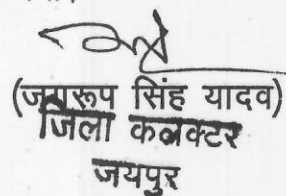 (जगरूप सिंह यादव)
जिला कलक्टर
जयपुर